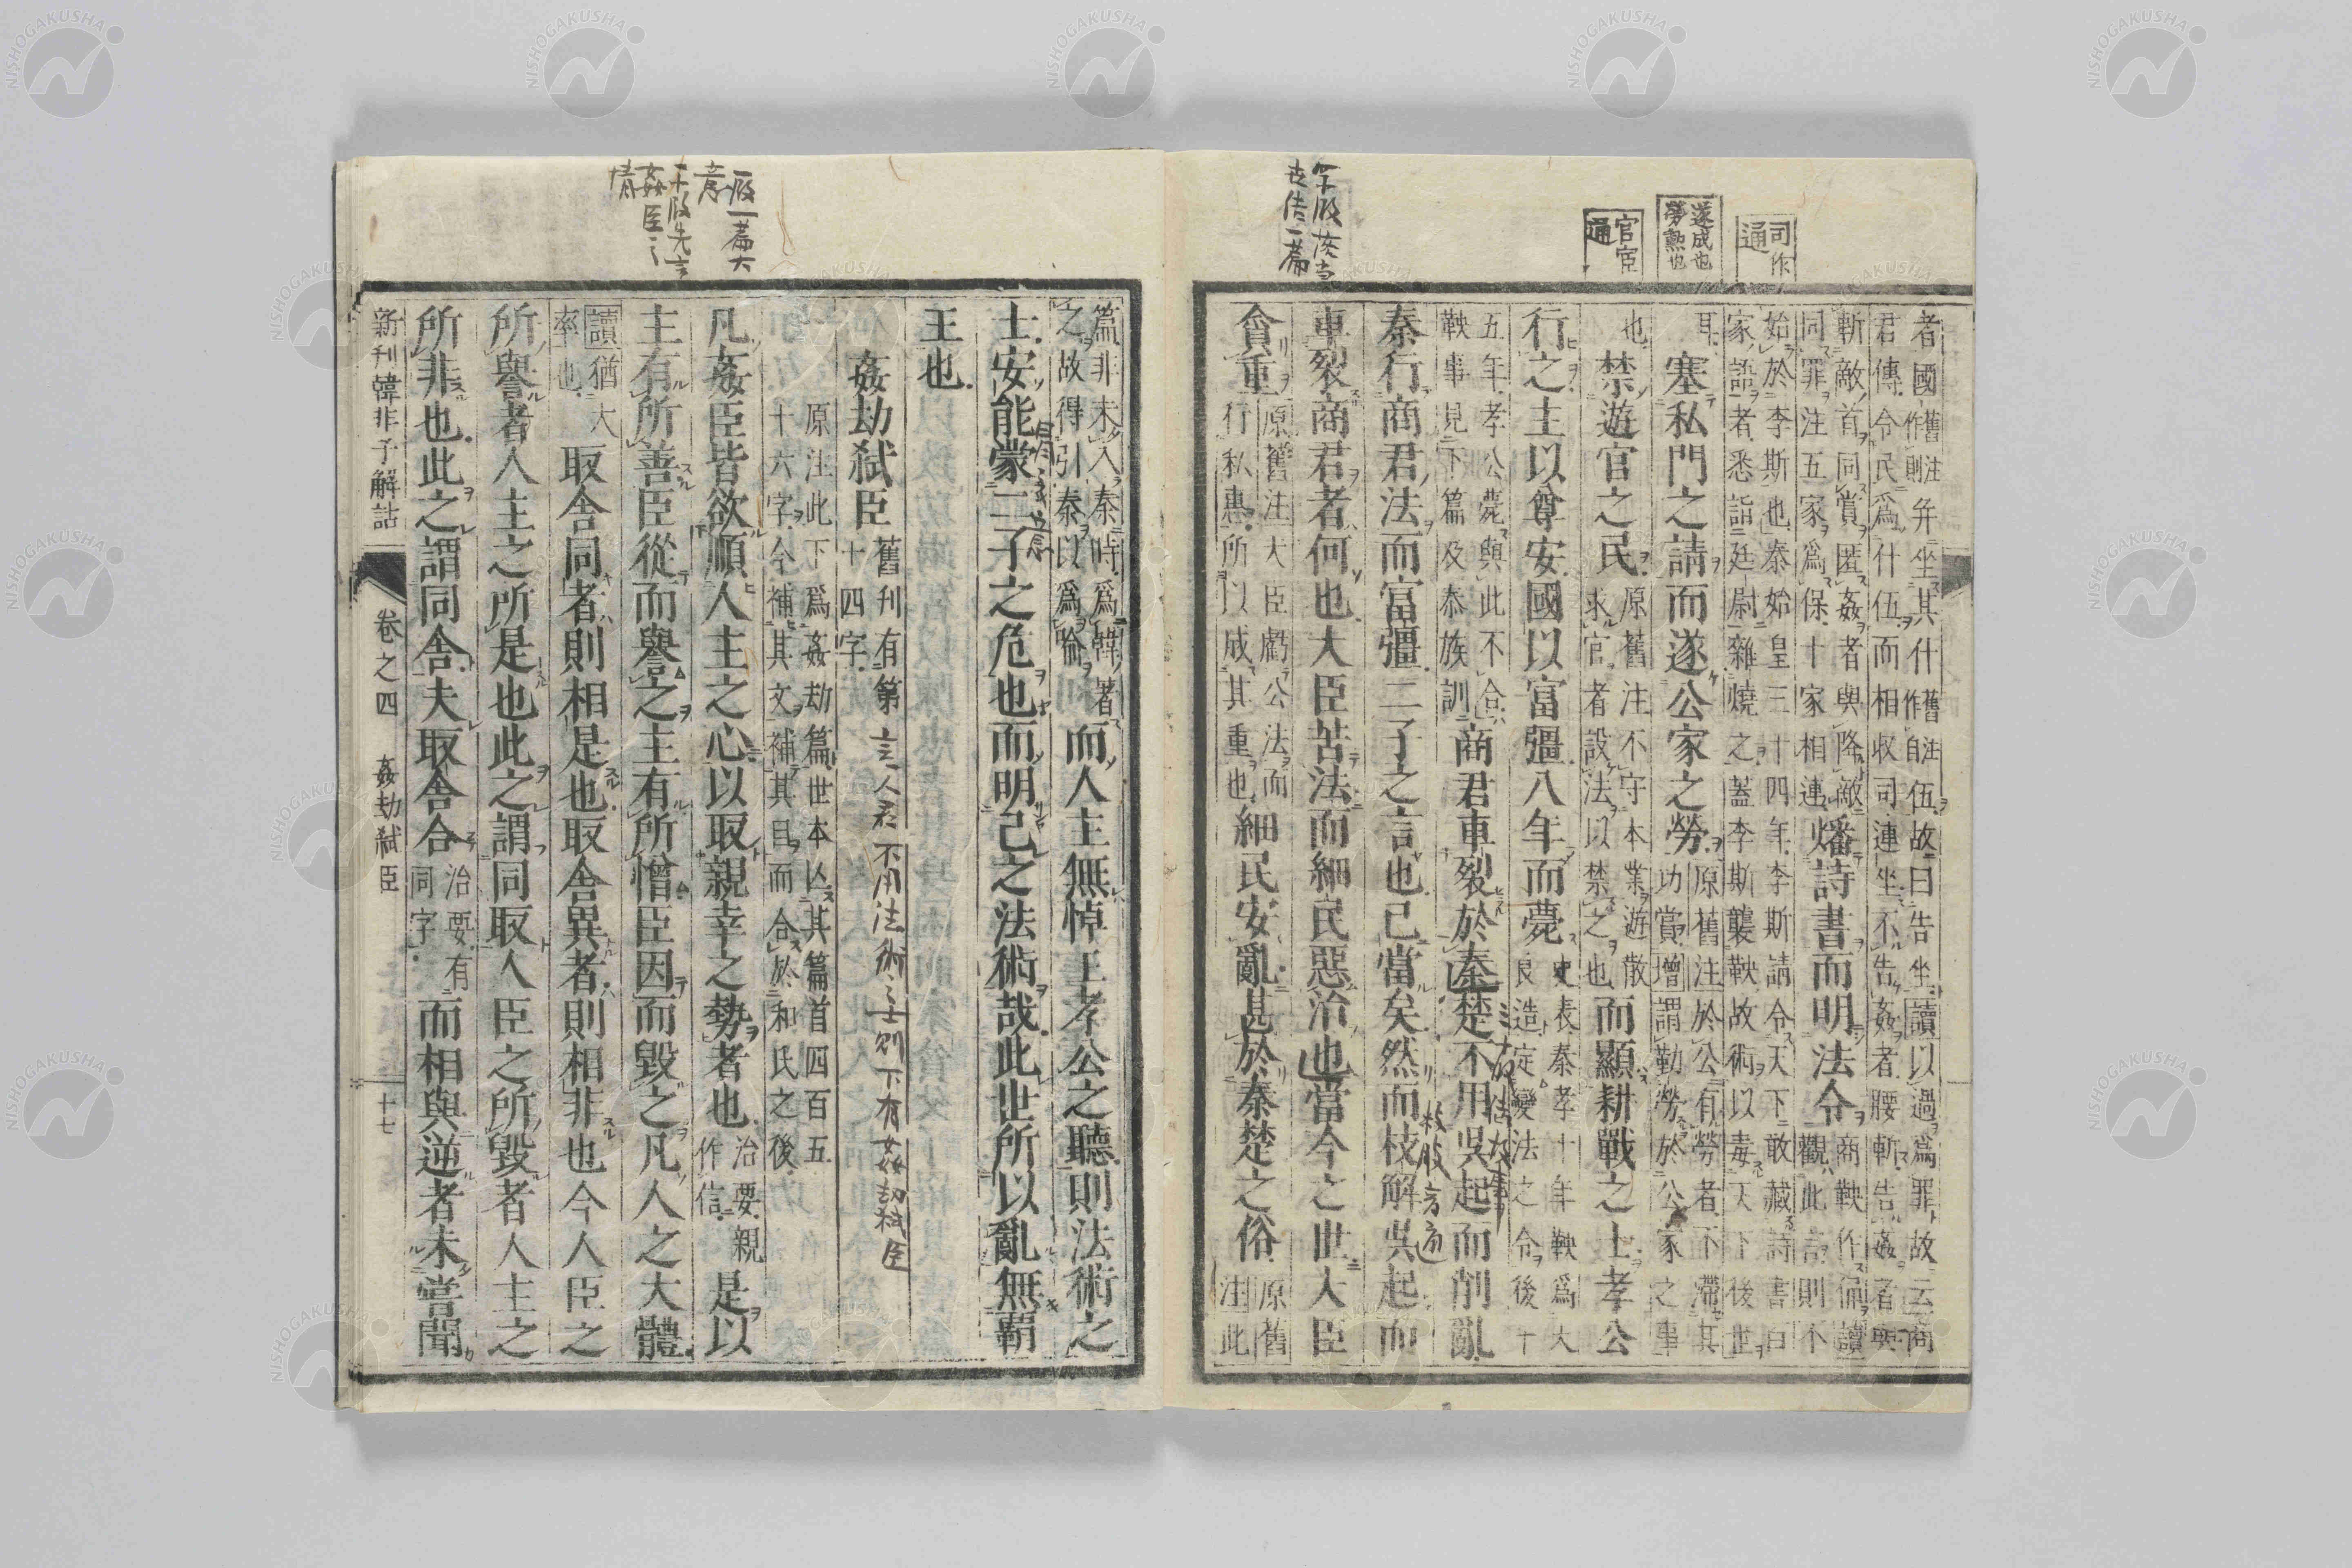 司作
通
遂成也
勞勲也
官宦
通
者國舊注作則弁坐其什舊注作自伍故曰告坐讀以過爲罪故云商
君傳令民爲什伍而相收司連坐不告姦者腰斬告姦者與
斬敵首同賞匿姦者與降敵
同罪注五家爲保十家相連燔詩書而明法令商鞅作偏讀
觀此言則不
始於李斯也秦始皇三十四年李斯請令天下敢藏詩書百
家語者悉詣廷尉雜燒之蓋李斯襲鞅故術以毒天下後世
耳塞私門之請而遂公家之勞原舊注於公有勞者不滯其
功賞增謂勤勞於公家之事
也禁遊官之民原舊注不守本業遊散
求官者設法以禁之也而顯耕戰之士孝公
行之主以尊安國以富彊八年而薨史表秦孝十年鞅爲大
良造定變法之令後十
五年孝公薨與此不合
鞅事見下篇及泰族訓商君車裂於秦楚不用吳起而削亂
秦行商君法而富彊二子之言也已當矣然而枝解吳起而
車裂商君者何也大臣苦法而細民惡治也當今之世大臣
貪重原舊注大臣虧公法而
行私惠所以成其重也細民安亂甚於秦楚之俗原舊
注此
篇非未入秦時爲韓著
之故得引秦以爲喩而人主無悼王孝公之聽則法術之
士安能蒙二子之危也而明己之法術哉此世所以亂無覇
王也
姦劫弑臣舊刊有第
十四字
言人君不用法術之士則下有姦劫弑臣
原注此下爲姦劫篇世本亾其篇首四百五
十六字今補其文補其目而合於和氏之後
凡姦臣皆欲順人主之心以取親幸之勢者也治要親
作信是以
主有所善臣從而譽之主有所憎臣因而毀之凡人之大體
讀猶大
率也取舍同者則相是也取舍異者則相非也今人臣之
所譽者人主之所是也此之謂同取人臣之所毀者人主之
所非也此之謂同舍夫取舍合治要有
同字而相與逆者未嘗聞
新刊韓非子解詁
卷之四 姦劫弑臣
十七